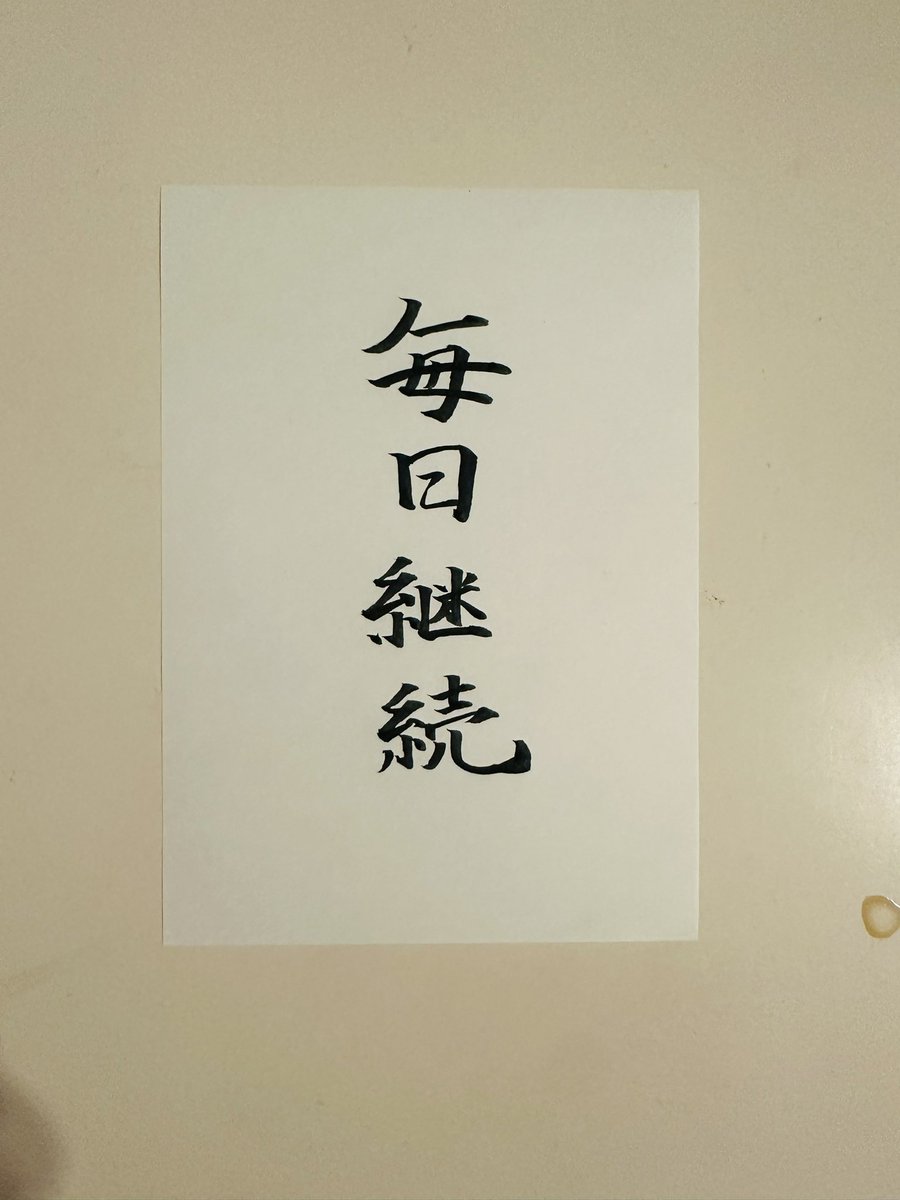 毎日継続